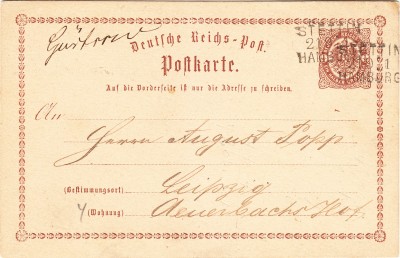 Güstrow
Deutsche Reichs-Post.
Postkarte.
Auf die Vorderseite ist nur die Adresse zu schreiben.
STETTIN
HAMBURG
STETTIN
HAMBURG
An
Herrn August Popp
(Bestimmungsort) Leipzig
(Wohnung) Auerbachs Hof.